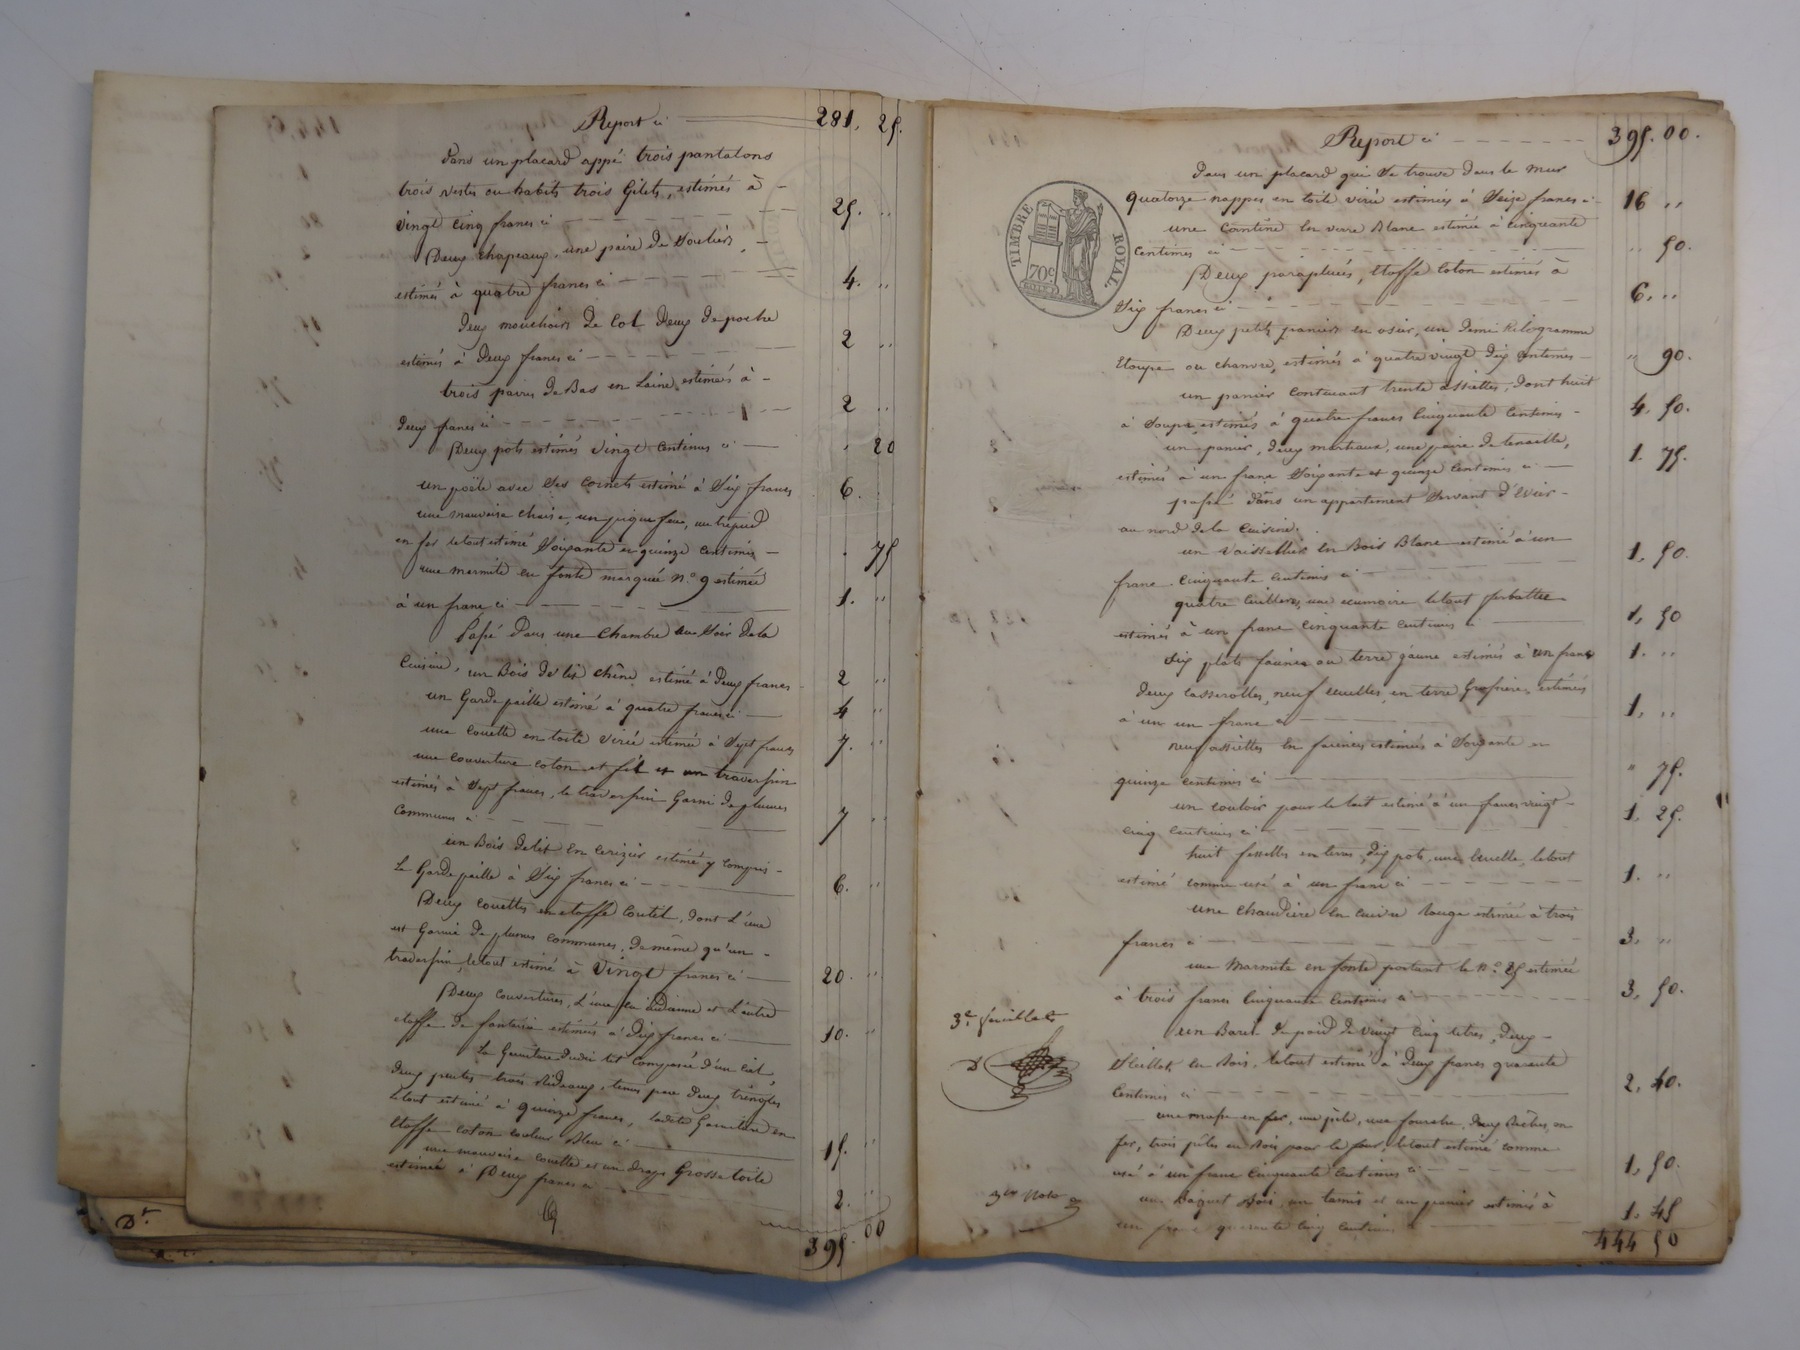 Report ci 281. 25.
Dans un placard appé trois pantalons
trois vestes ou habits trois Gilets, estimés à
vingt cinq francs ci 25. "
Deux chapeaux, une paire de Souliers,
estimés à quatre francs ci 4. "
deux mouchoirs de Col deux de poche
estimés à Deux francs ci 2 "
trois paires de Bas en Laine, estimés à
deux francs ci 2 "
Deux pots estimés vingt centimes ci " 20
un poële avec ses Cornets estimé à Six francs 6. "
une mauvaise chaise, un pique feux, un trépied
en fer le tout estimé Soixante et quinze centimes " 75
une marmite en fonte marquée N.° 9 estimée
à un franc ci 1. "
Passé dans une Chambre au Soir de la
Cuisine, un Bois de lit chêne estimé à Deux francs 2 "
un Gardepaille estimé à quatre francs ci 4 "
une Couette en toile virée estimée à Sept francs 7. "
une couverture coton et fil et un traversin
estimés à Sept francs, le traversin Garni de plumes
Communes ci 7 "
un Bois de lit en Cerizier estimé y compris
Le Gardepaille à Six francs ci 6. "
Deux couettes en étoffe Coutil, dont L'une
est Garnie de plumes communes, de même qu'un
traversin, le tout estimé à Vingt francs ci 20 "
Deux couvertures, L'une en indianne et L'autre
étoffe de fantaisie estimées à Dix francs ci 10. "
La Garniture dudit lit Composée d'un Ciel,
deux pentes trois Rideaux, tenus par deux tringles
le tout estimé à quinze francs, ladite Garniture en
étoffe coton couleur Bleu ci 15. "
une mauvaise couette et un draps Grosse toile
estimés à Deux francs ci 2. "
395. 00
Dt
Report ci 395. 00.
Dans un placard qui Se trouve dans le mur
quatorze nappes en toile virée estimées à Seize francs ci 16 "
une Cantine en verre Blanc estimée à Cinquante
Centimes ci " 50.
Deux parapluies, étoffe Coton estimés à
Six francs ci 6. "
Deux petits paniers en osier, un demi kilogramme
Etoupe ou chanvre, estimés à quatre vingt dix centimes " 90.
un panier contenant trente assiettes, dont huit
à Soupe, estimés à quatre francs Cinquante Centimes 4. 50.
un panier, deux marteaux, une paire de tenaille,
estimés à un franc Soixante et quinze Centimes ci 1. 75.
passé dans un appartement Servant d'Evier
au nord de la Cuisine.
un vaissellier en Bois Blanc estimé à un
franc Cinquante Centimes ci 1, 50.
quatre Cuillers, une ecumoire le tout fer battu
estimés à un franc Cinquante Centimes ci 1, 50
Six plats faience ou terre jaune estimés à un franc 1. "
deux Casserolles, neuf écuelles, en terre Grossière, estimées
à un un franc ci 1, "
neuf assiettes en faience, estimées à Soixante et
quinze centimes ci " 75.
un couloir pour le lait estimé à un franc vingt
cinq Centimes ci 1, 25.
huit faisselles en terre, dix pots, une écuelle, le tout
estimé comme usé à un franc ci 1. "
une Chaudière en Cuivre Rouge estimée à trois
francs ci 3. "
une Marmite en fonte portant le N.° 25 estimée
à trois francs Cinquante Centimes ci 3, 50.
un Baril du poid de vingt Cinq litres, deux
Seillots, en Bois, le tout estimé à Deux francs quarante
Centimes ci 2, 40.
une masse en fer, une pèle, une fourche, deux Bêches, en
fer, trois pèles en Bois pour le four, le tout estimé comme
usé à un franc Cinquante Centimes ci 1, 50.
un Baquet Bois, un tamis et un panier estimés à
un franc quarante cinq centimes ci 1. 45
444 50
TIMBRE ROYAL
70c.
3e. feuillet
3er Role